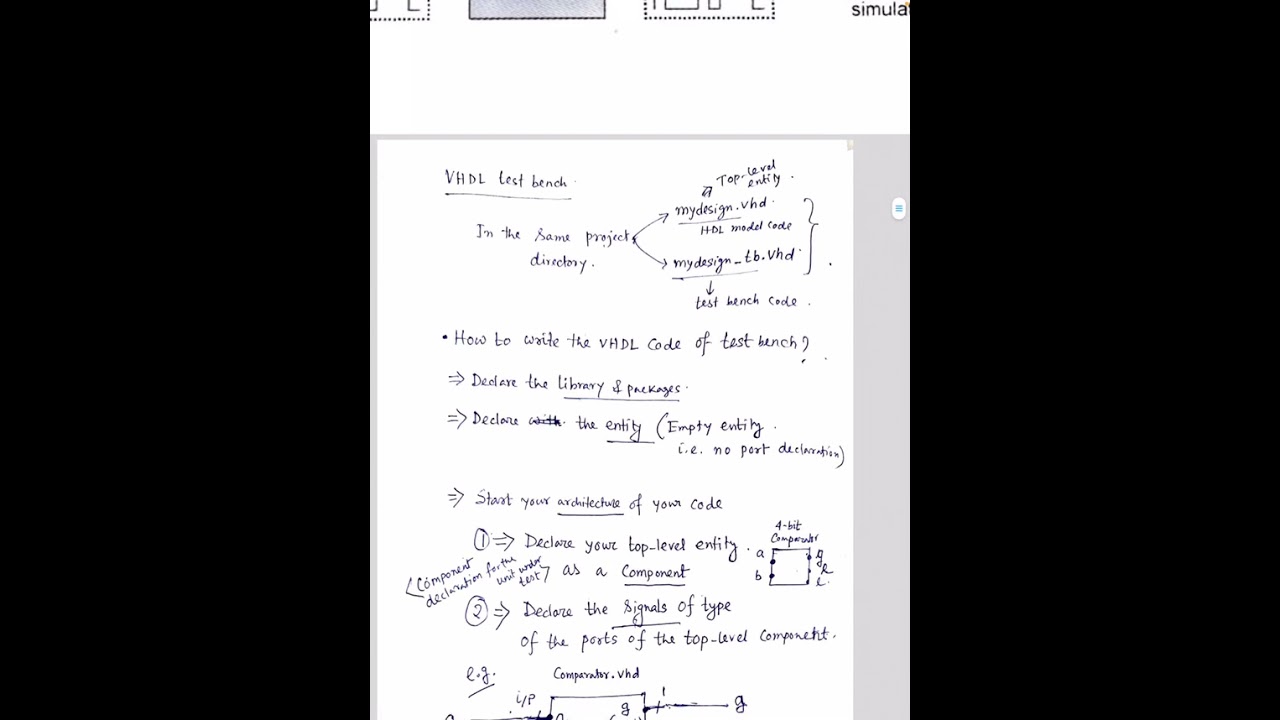 simula
VHDL test bench.
Top-level
entity.
mydesign.vhd.
HDL model code
In the same project
directory.
mydesign_tb.vhd.
test bench code.
• How to write the VHDL code of test bench?
⇒ Declare the library & packages.
⇒ Declare with the entity (Empty entity.
i.e. no port declaration)
⇒ Start your architecture of your code
① ⇒ Declare your top-level entity.
as a Component
<Component
declaration for the
unit under
test>
4-bit
Comparator
a
b
g
e
l
② ⇒ Declare the signals of type
of the ports of the top-level component.
e.g.
Comparator.vhd
i/p
g
g